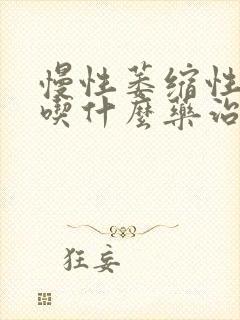 慢性萎缩性
喫什麼藥治
狂妄